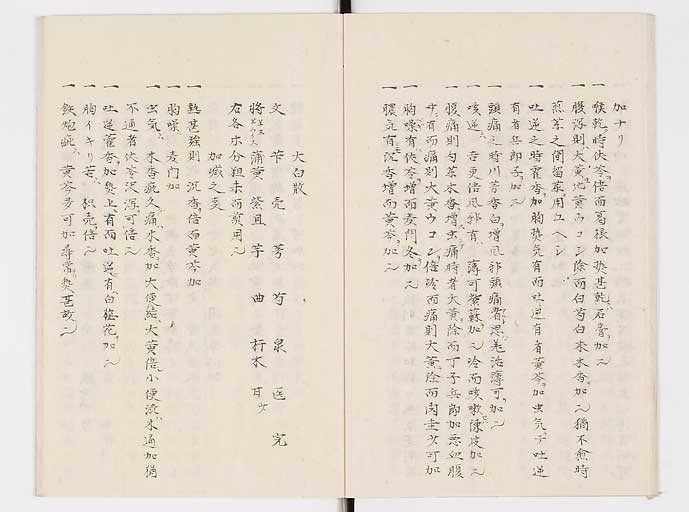 加ナリ
一 喉乾時茯苓倍而葛根加熱甚乾石膏加ニ
一 腹瀉則大黄地黄ウコン除而白芍白朮木香加ニ猶不愈時
煎茶之間留茱用ユヘシ
一 吐逆之時霍香加胸熱気有而吐逆有者黄芩加虫気ヂ吐逆
有者兵郎子加ニ
一 頭痛之時川芎香白増風邪頭痛者羌活薄可加ニ
一 咳逆 吉更倍風邪有 薄可紫蘇加ニ冷而咳嗽陳皮加ニ
一 腹痛則勺茶木香増虫痛時者大黄除而丁子兵郎加悪血腹
サ有而痛則大黄ウコン倍冷而痛則大黄除而肉圭少可加
一 胸嘈有茯苓増而麦門冬加ニ
一 腰気有沉香増而黄芩加ニ
大白散
文 苄 売 芳 芍 泉 医 完
将 蒲黄 紫 皿 芋 曲 打 木 甘少
右各ホ分粗末而煎用ニ
加減之㕝
一 熱甚強則 沉香倍而黄芩加
一 胸嘈 麦門加
一 虫気 木香疵久痛木香加大便結大黄倍小便渋木通加猶
不通者茯苓沢瀉可倍ニ
一 吐逆霍香加熱上有而吐逆有白梅花加ニ
一 胸イキリ苦 枳売倍ニ
一 鉄炮疵 黄芩芳可加尋常熱甚故ニ